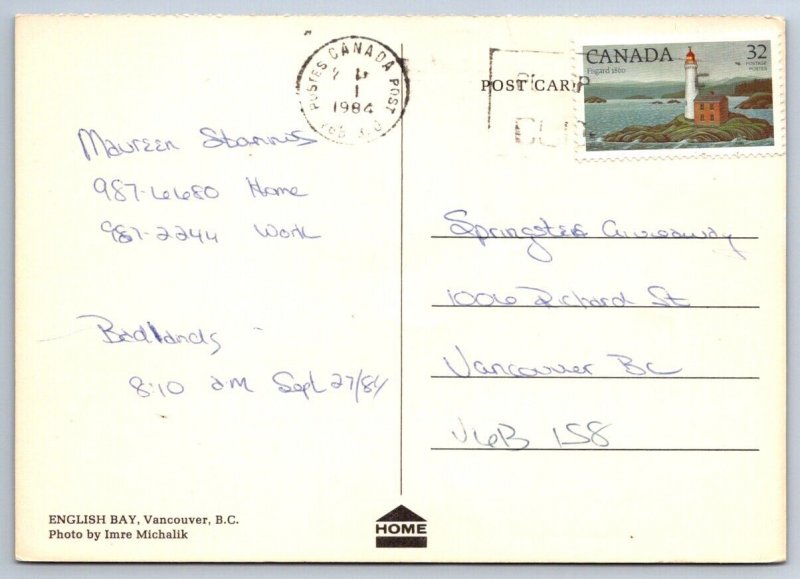 POSTES CANADA POST
1
1984
POST CARD
CANADA 32
Fisgard 1860 POSTAGE
POSTES
Maureen
987-6680 Home
987-2244 Work
Badlands
8:10 am Sept 27/84
Springsteen Giveaway
1006 Richard St
Vancouver BC
V6B 1S8
ENGLISH BAY, Vancouver, B.C.
Photo by Imre Michalik
HOME